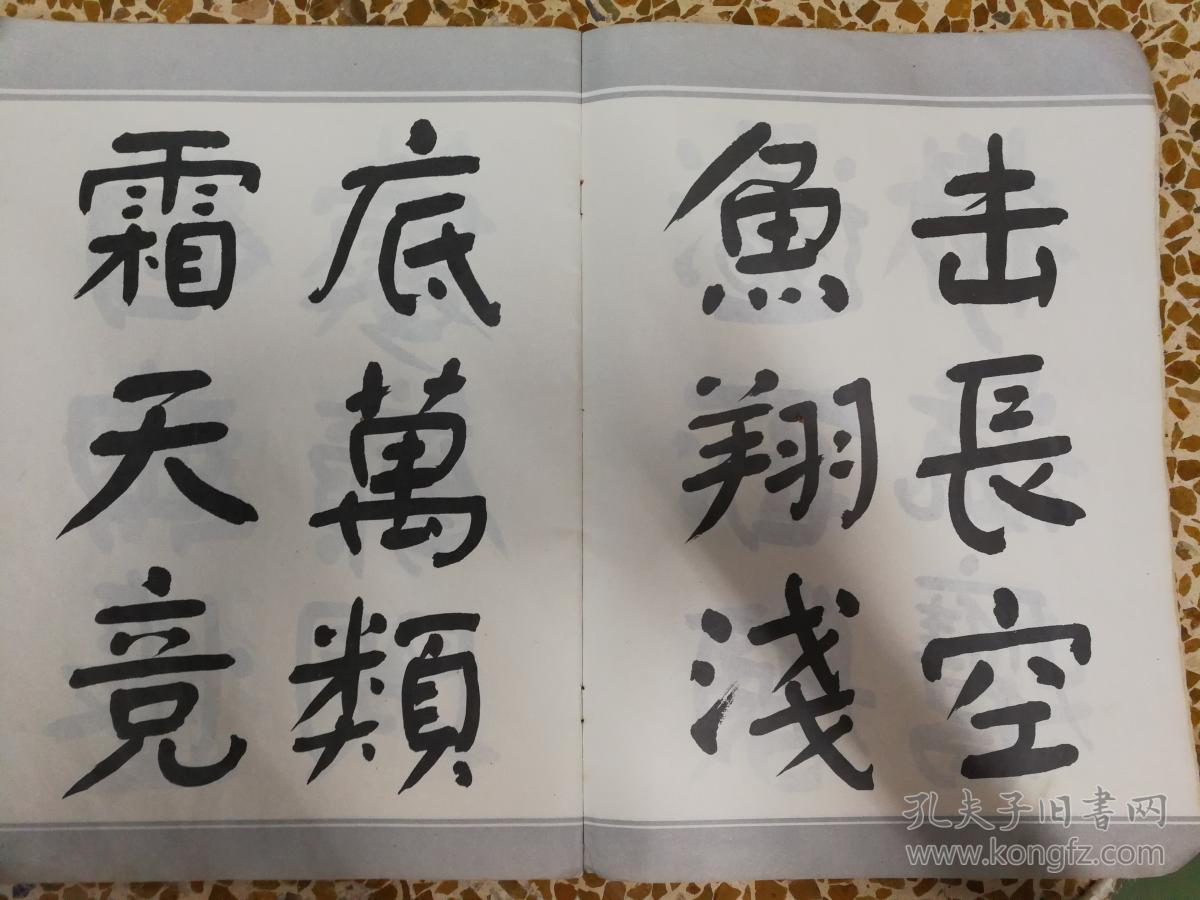 击長空
魚翔淺
底萬類
霜天竞
孔夫子旧書网
www.kongfz.com